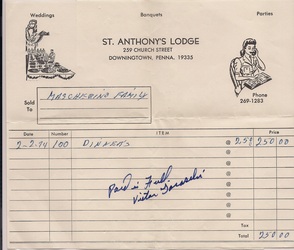 Weddings Banquets Parties
ST. ANTHONY'S LODGE
259 CHURCH STREET
DOWNINGTOWN, PENNA. 19335
Phone
269-1283
Sold To MASCHERINO FAMILY
Price
Date Number ITEM
2-2-74 100 DINNERS @ 2.50 250 00
@
@
@
Paid in Full
@
Victor
@
@
Tax
Total 250 00